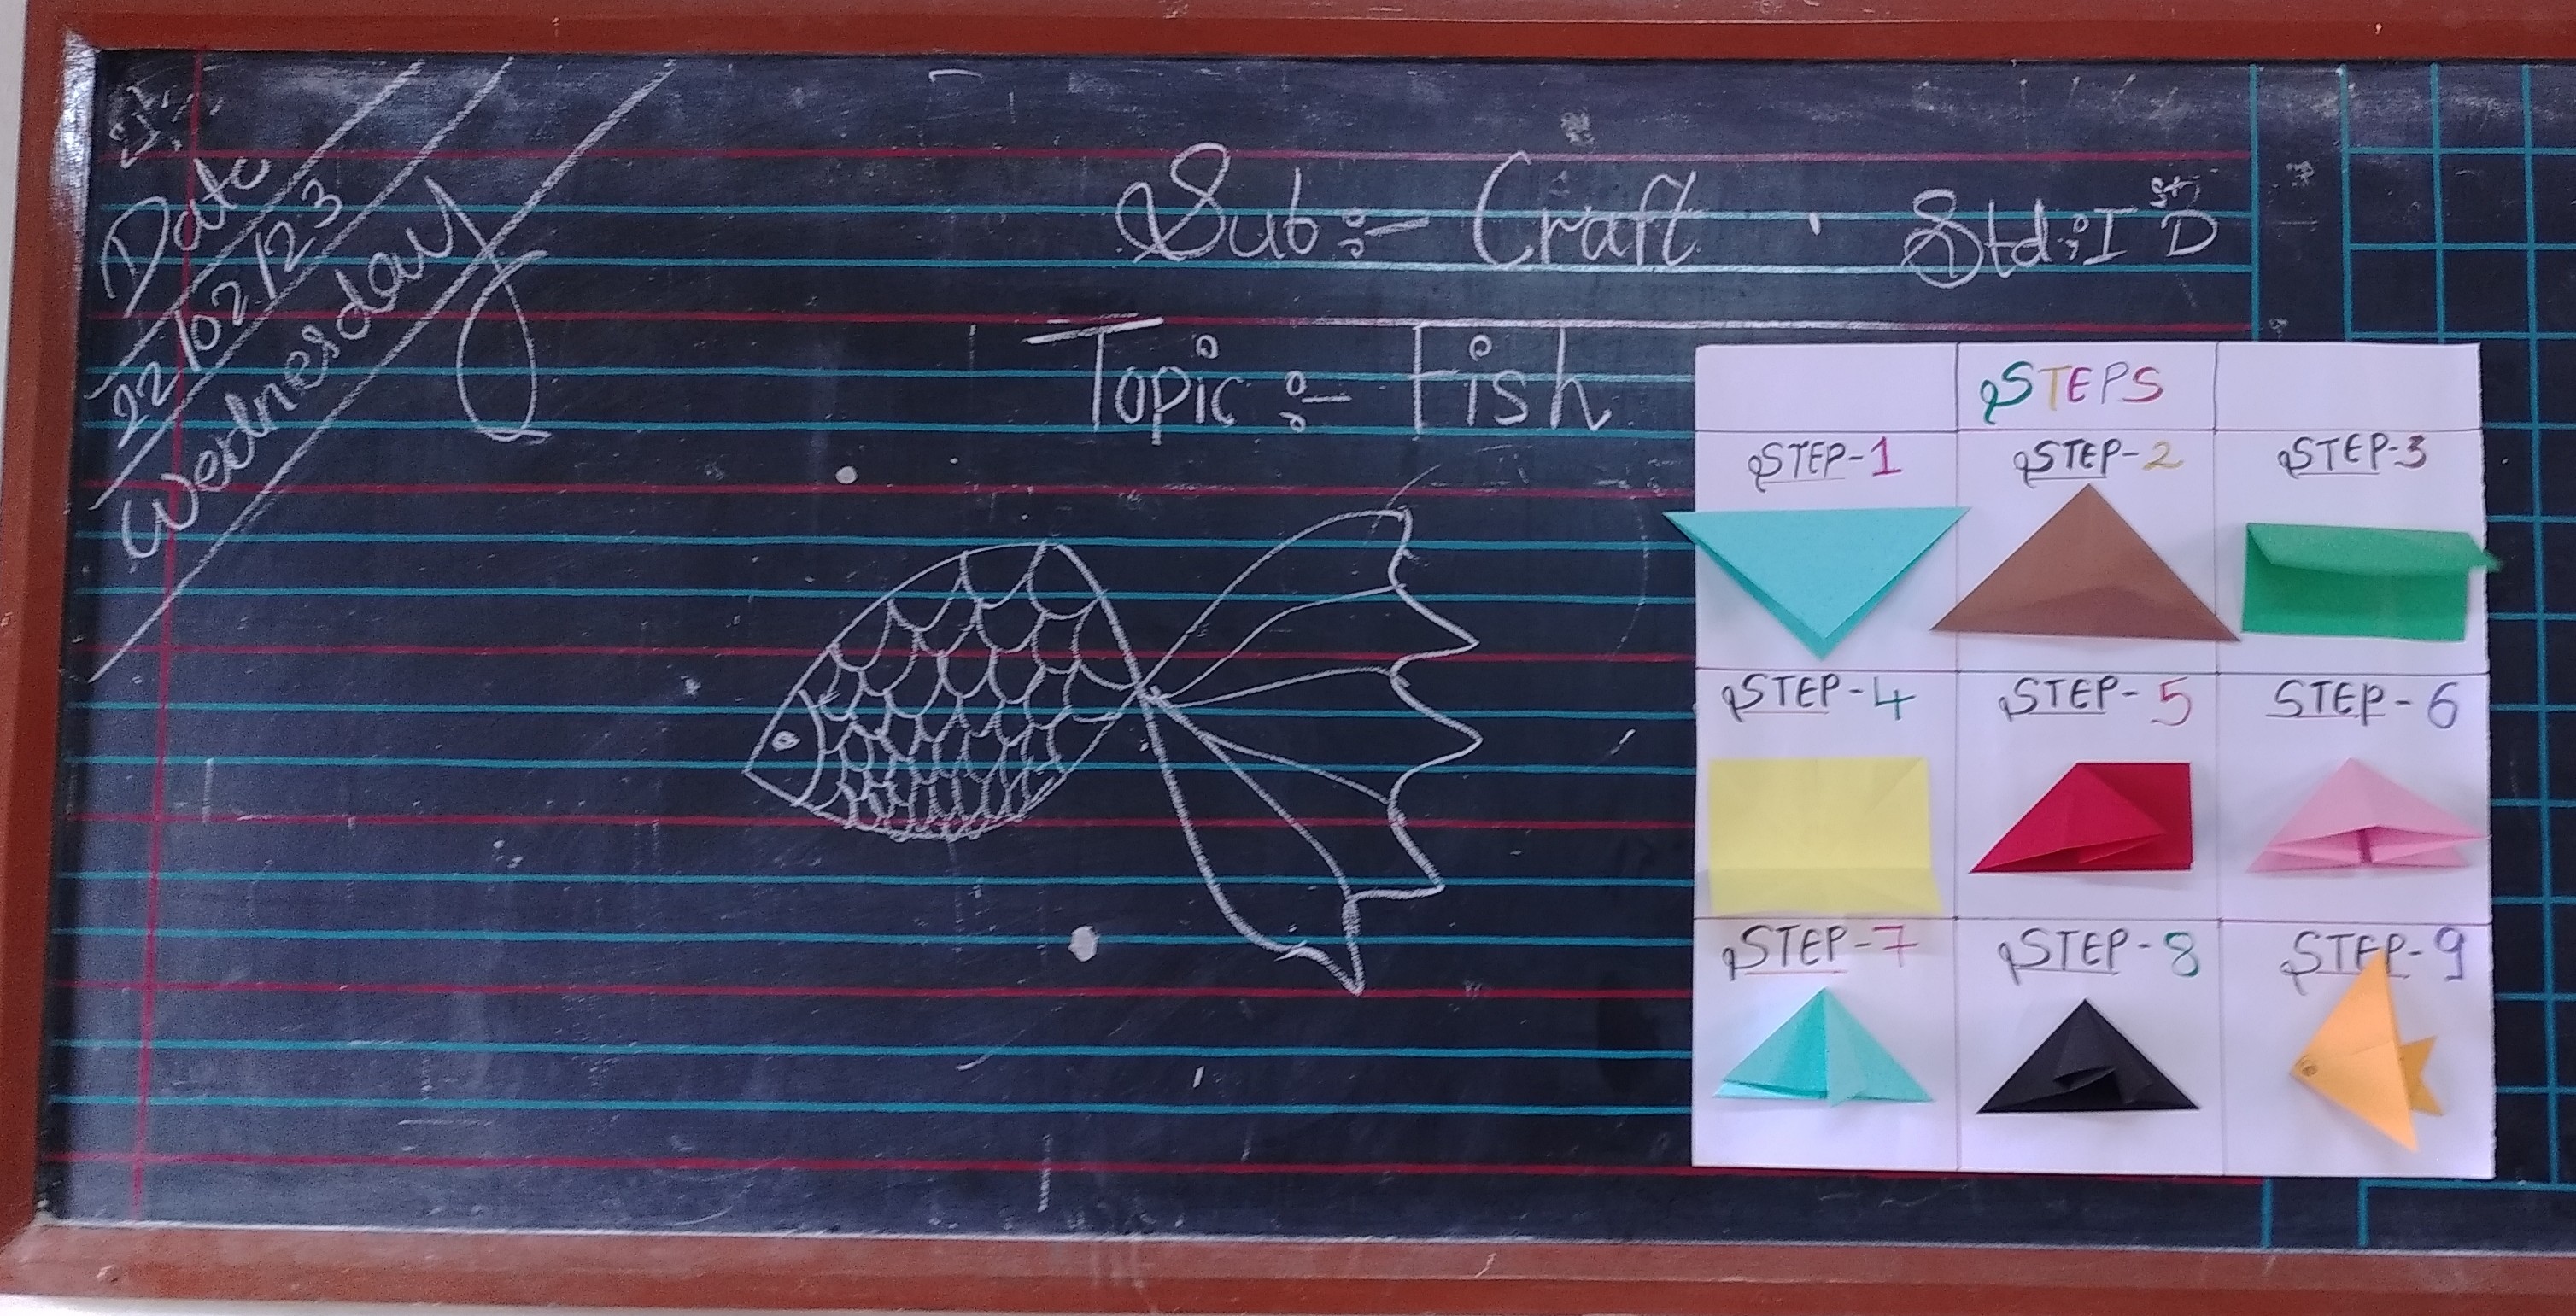 Date
22/02/23
Wednesday
Sub :- Craft . Std : I st D
Topic :- Fish
STEPS
STEP-1 STEP-2 STEP-3
STEP-4 STEP-5 STEP-6
STEP-7 STEP-8 STEP-9